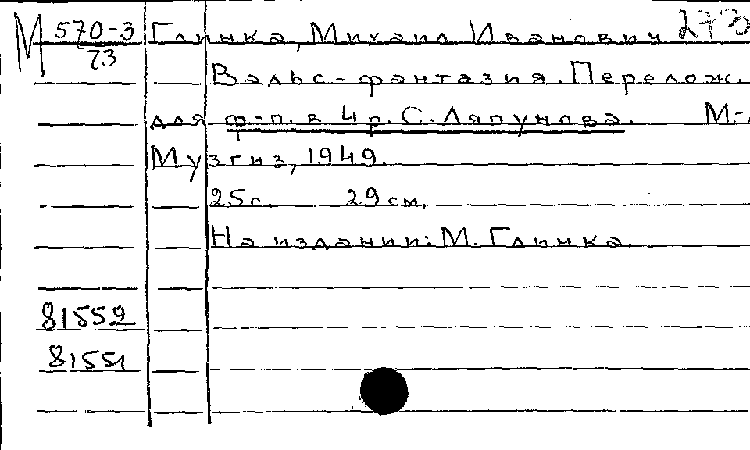 М 570-3 Глинка, Михаил Иванович 273
73
Вальс-фантазия. Перелож.
для ф-п. в 4 р. С. Ляпунова. М-
Музгиз, 1949.
25 с. 29 см.
На издании: М. Глинка
81552
81551